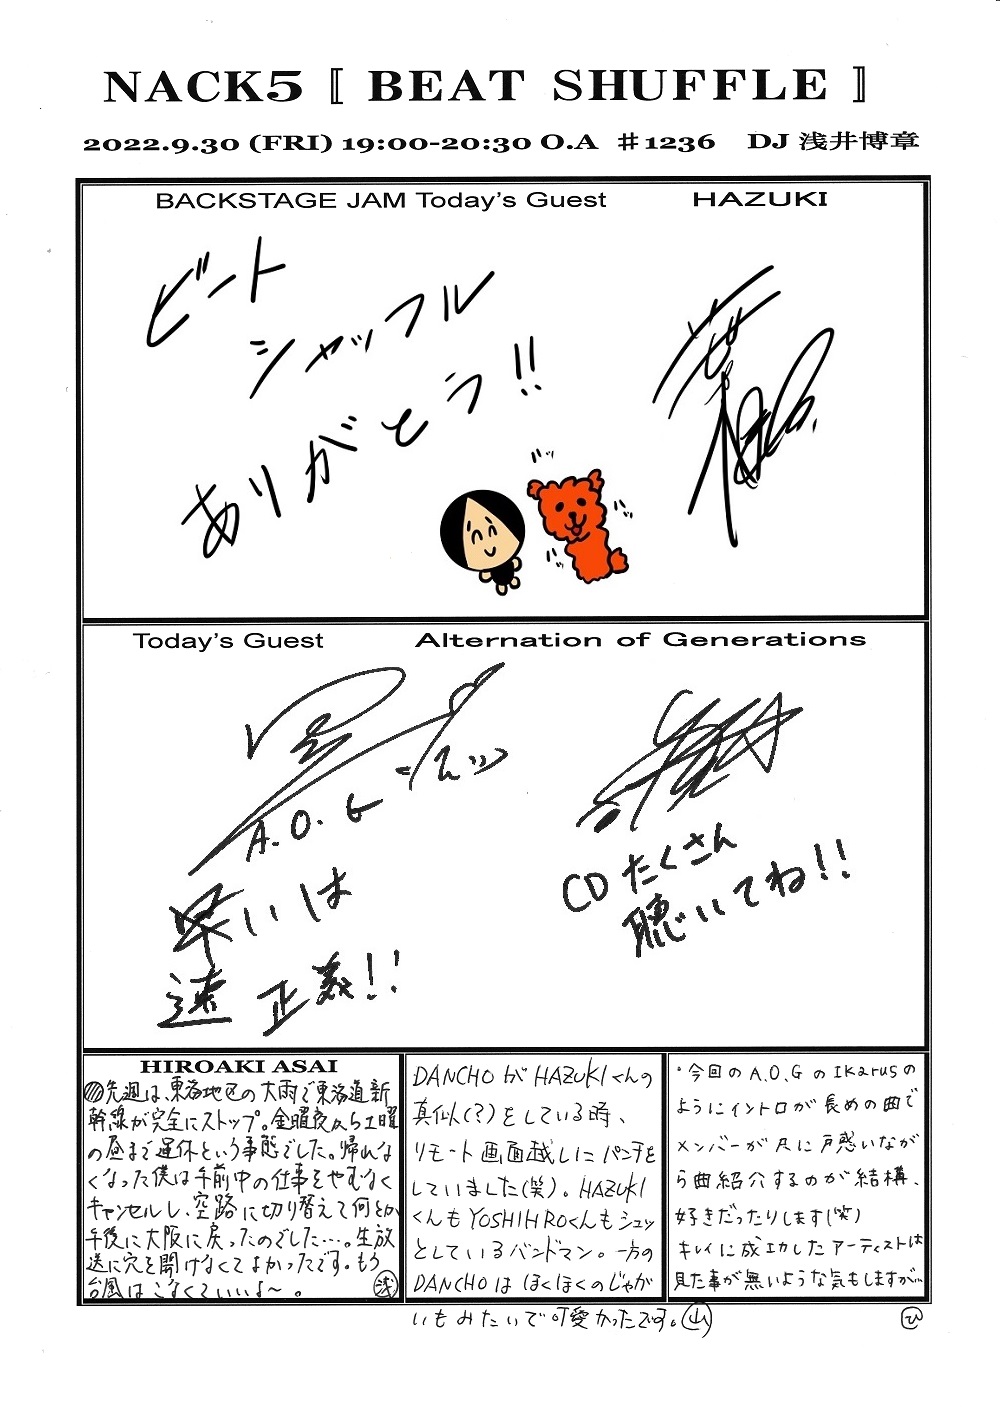 NACK5 〚 BEAT SHUFFLE 〛
2022.9.30 (FRI) 19:00-20:30 O.A ＃1236 DJ 浅井博章
BACKSTAGE JAM Today's Guest HAZUKI
ビート
シャッフル
ありがとう!!
葉月
Today's Guest Alternation of Generations
A.O.G
いは
速 正義!!
CDたくさん
聴いてね!!
HIROAKI ASAI
先週は、東海地区の大雨で東海道新
幹線が完全にストップ。金曜夜から土曜
の昼まで運休という事態でした。帰れな
くなった僕は午前中の仕事をやむなく
キャンセルし、空路に切り替えて何とか
午後に大阪に戻ったのでした…。生放
送に穴を開けなくてよかったです。もう
台風はこなくていいよ〜。 浅
DANCHOがHAZUKIくんの
真似(?)をしている時、
リモート画面越しにパンチを
していました(笑)。HAZUKI
くんもYOSHIHIROくんもシュッ
としているバンドマン。一方の
DANCHOはほくほくのじゃが
いもみたいで可愛かったです。山
・今回のA.O.GのIkarusの
ようにイントロが長めの曲で
メンバーが尺に戸惑いなが
ら曲紹介するのが結構、
好きだったりします(笑)
キレイに成功したアーティストは
見た事が無いような気もしますが…
ひ